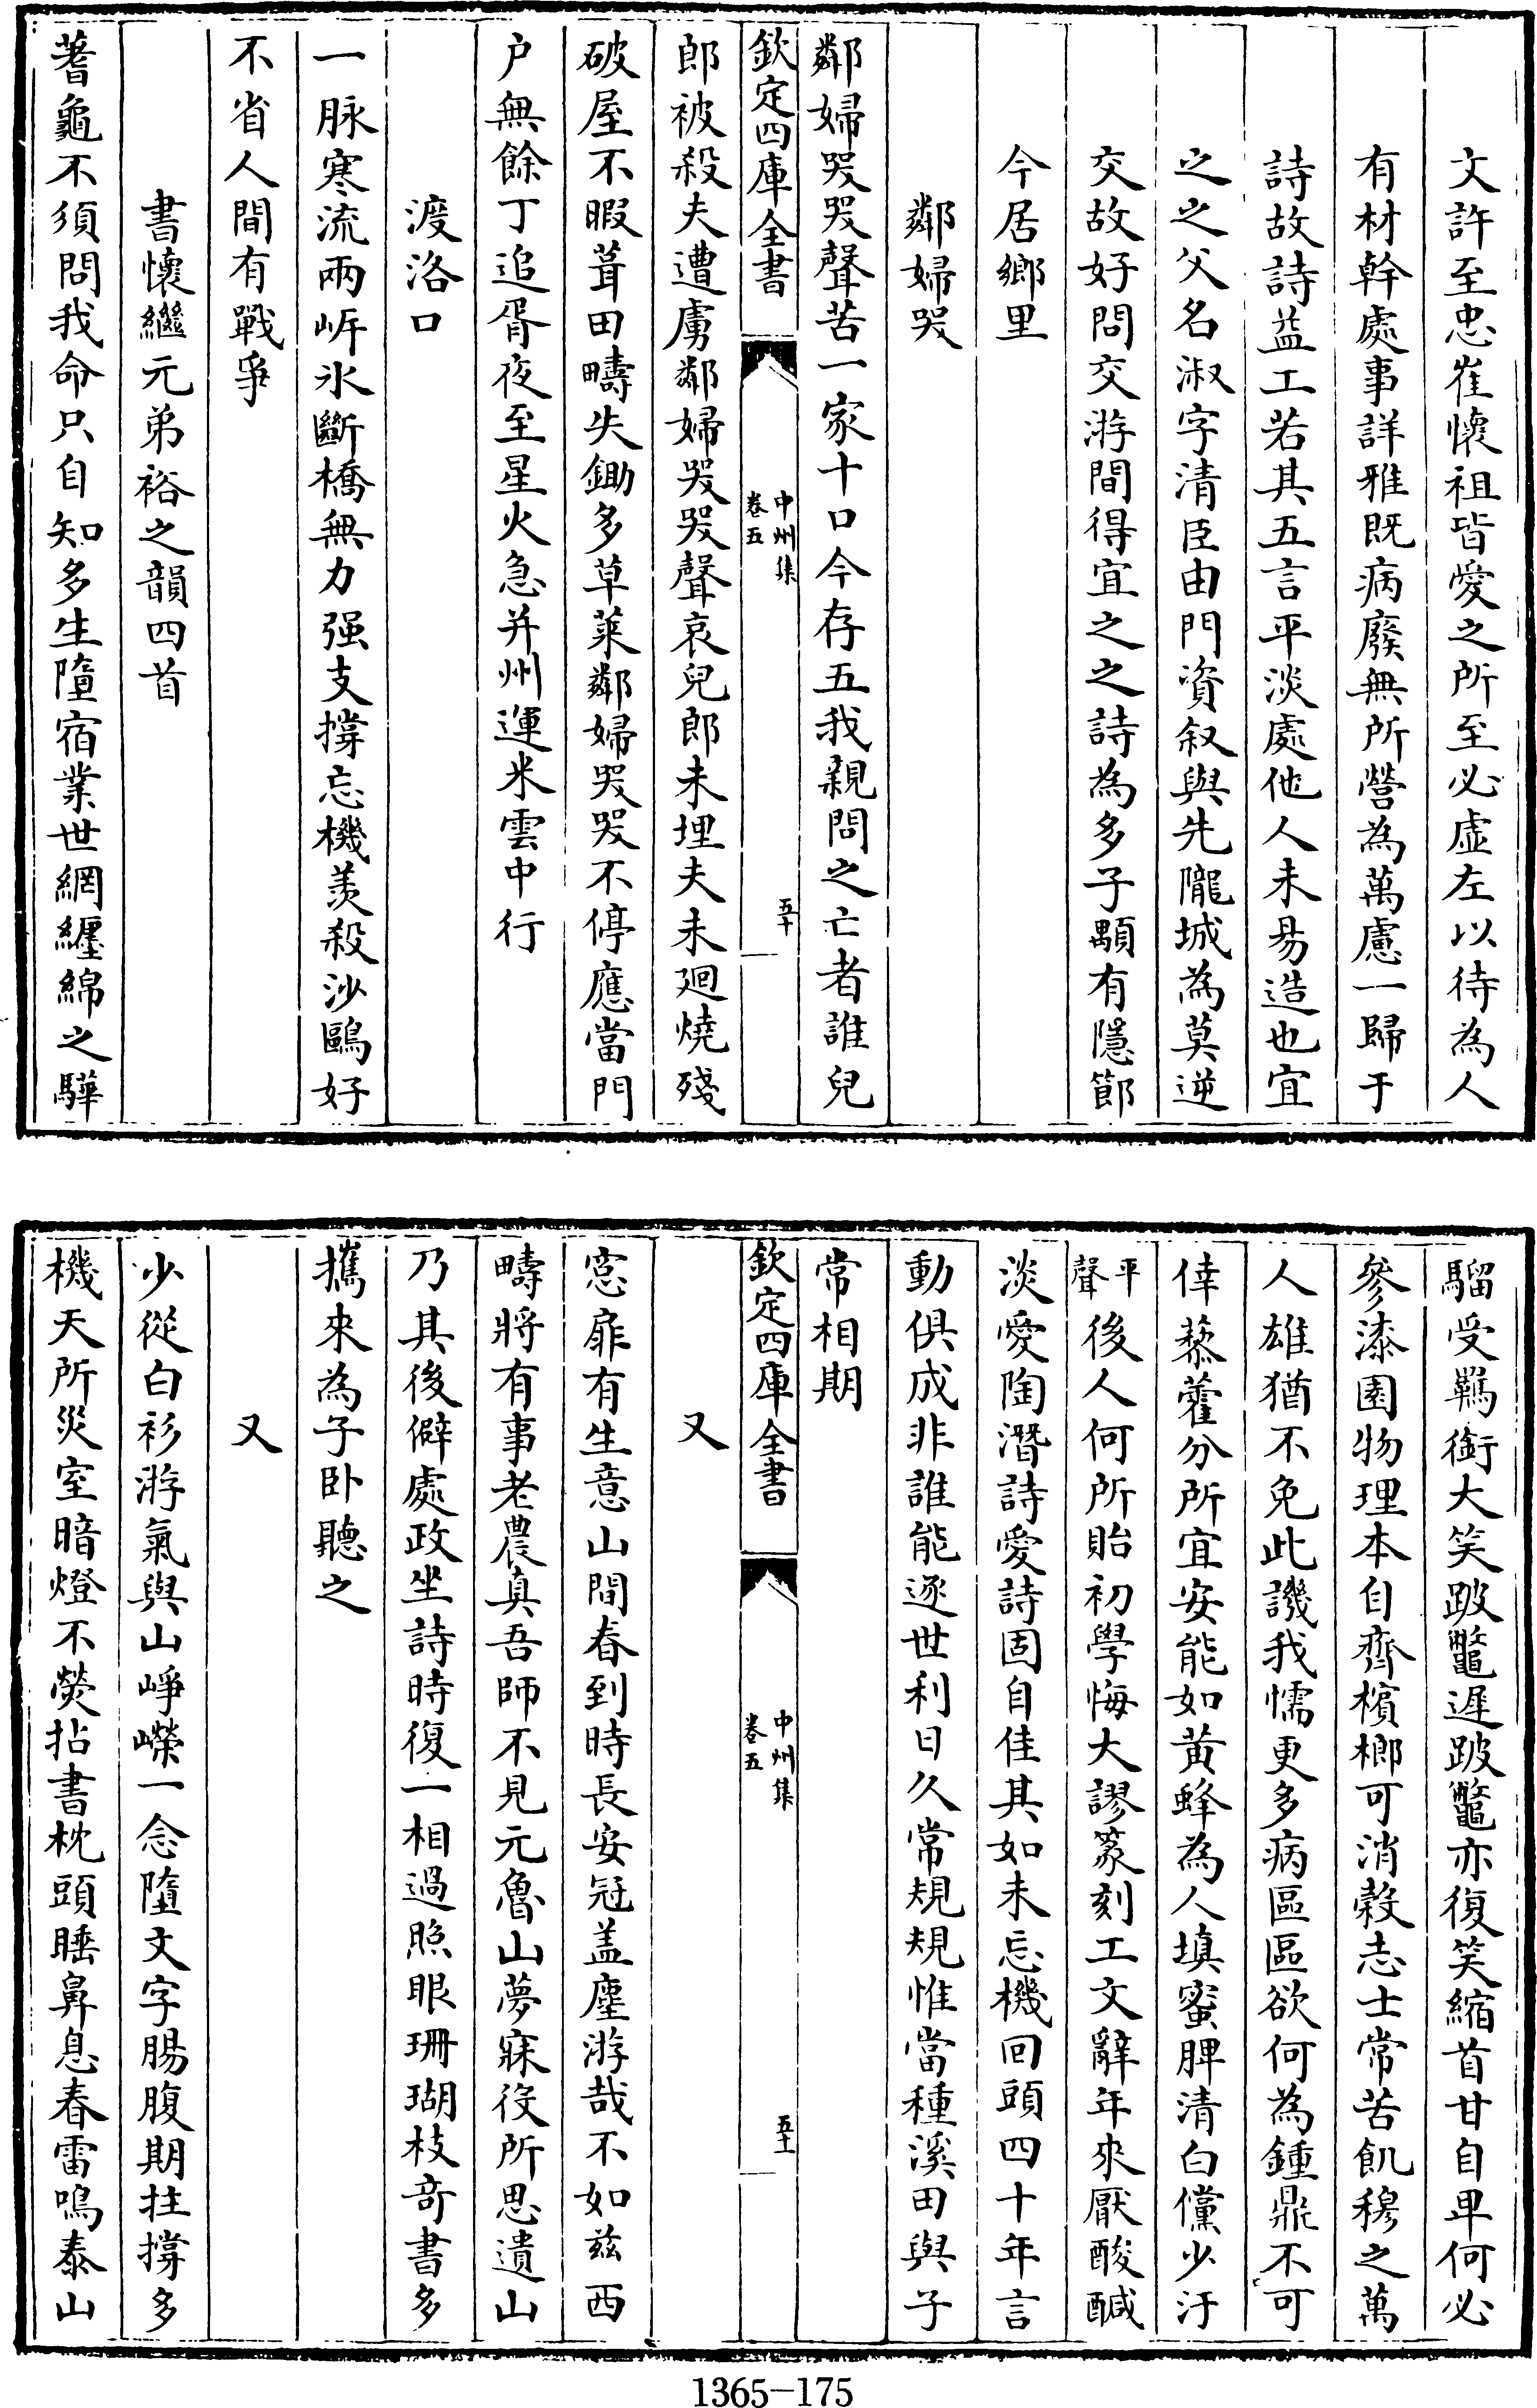 文許至忠崔懷祖皆愛之所至必虛左以待為人
有材幹處事詳雅既病廢無所營為萬慮一歸于
詩故詩益工若其五言平淡處他人未易造也宜
之之父名淑字清臣由門資叙與先隴城為莫逆
交故好問交游間得宜之之詩為多子顒有隱節
今居鄉里
鄰婦哭
鄰婦哭哭聲苦一家十口今存五我親問之亡者誰兒
欽定四庫全書
中州集
卷五
五十
郎被殺夫遭虜鄰婦哭哭聲哀兒郎未埋夫未廻燒殘
破屋不暇葺田疇失鋤多草萊鄰婦哭哭不停應當門
户無餘丁追胥夜至星火急并州運米雲中行
渡洛口
一脉寒流兩岍氷斷橋無力强支撐忘機羡殺沙鷗好
不省人間有戰爭
書懷繼元弟裕之韻四首
蓍龜不須問我命只自知多生墮宿業世網纒綿之驊
騮受羈銜大笑跛鼈遲跛鼈亦復笑縮首甘自卑何必
參漆園物理本自齊檳榔可消穀志士常苦飢穆之萬
人雄猶不免此譏我懦更多病區區欲何為鍾鼎不可
倖藜藿分所宜安能如黄蜂為人填蜜脾清白儻少汙
平聲後人何所貽初學悔大謬篆刻工文辭年年來厭酸醎
淡愛陶潛詩愛詩固自佳其如未忘機回頭四十年言
動俱成非誰能逐世利日久常規規惟當種溪田與子
常相期
欽定四庫全書
中州集
卷五
五十一
又
窓扉有生意山間春到時長安冠盖塵游哉不如兹西
疇將有事老農真吾師不見元魯山夢寐役所思遺山
乃其後僻處政坐詩時復一相過照眼珊瑚枝奇書多
攜來為子卧聽之
又
少從白衫游氣與山崢嶸一念墮文字腸腹期拄撐多
機天所災室暗燈不熒拈書枕頭睡鼻息春雷鳴泰山
1365-175